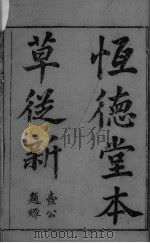 恆德堂本
草從新
壺公
題